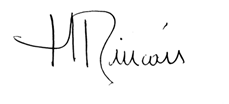 HRincón